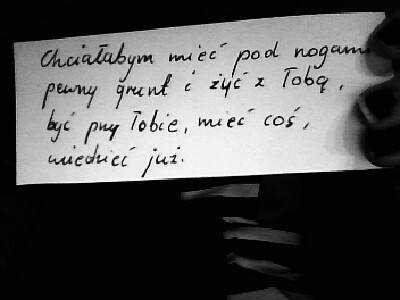 Chciałabym mieć pod nogami
pewny grunt i żyć z Tobą,
być przy Tobie, mieć coś,
wiedzieć już.